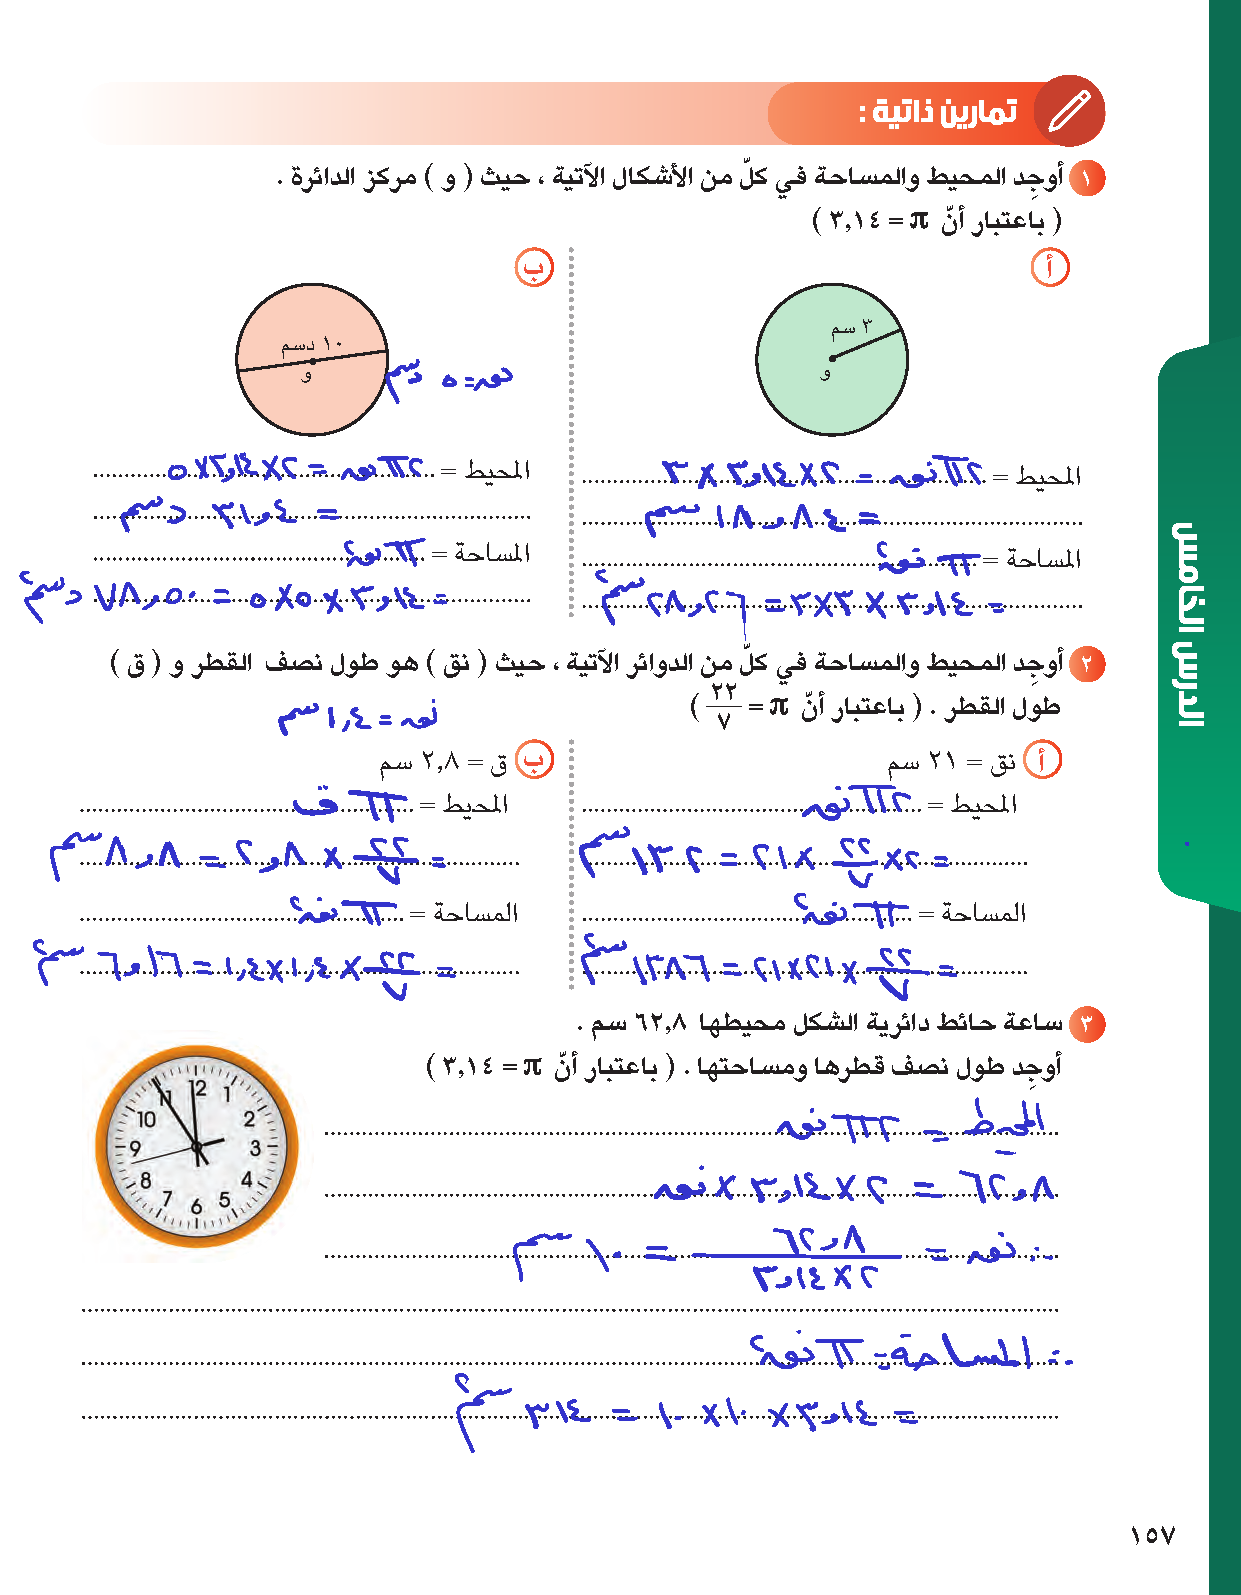 تمارين ذاتية :
١ أوجِد المحيط والمساحة في كلّ من الأشكال الآتية ، حيث ( و ) مركز الدائرة .
( باعتبار أنّ π = ٣,١٤ )
أ
٣ سم
و
المحيط = ٢ π نق = ٢ × ٣,١٤ × ٣
= ١٨,٨٤ سم
المساحة = π نق٢
= ٣,١٤ × ٣ × ٣ = ٢٨,٢٦ سم٢
ب
١٠ دسم
و
نق = ٥ دسم
المحيط = ٢ π نق = ٢ × ٣,١٤ × ٥
= ٣١,٤ دسم
المساحة = π نق٢
= ٣,١٤ × ٥ × ٥ = ٧٨,٥٠ دسم٢
٢ أوجِد المحيط والمساحة في كلّ من الدوائر الآتية ، حيث ( نق ) هو طول نصف القطر و ( ق )
طول القطر . ( باعتبار أنّ π = ٢٢/٧ )
أ نق = ٢١ سم
المحيط = ٢ π نق
= ٢ × ٢٢/٧ × ٢١ = ١٣٢ سم
المساحة = π نق٢
= ٢٢/٧ × ٢١ × ٢١ = ١٣٨٦ سم٢
نق = ١,٤ سم
ب ق = ٢,٨ سم
المحيط = π ق
= ٢٢/٧ × ٢,٨ = ٨,٨ سم
المساحة = π نق٢
= ٢٢/٧ × ١,٤ × ١,٤ = ٦,١٦ سم٢
٣ ساعة حائط دائرية الشكل محيطها ٦٢,٨ سم .
أوجِد طول نصف قطرها ومساحتها . ( باعتبار أنّ π = ٣,١٤ )
12 1 2 3 4 5 6 7 8 9 10 11
المحيط = ٢ π نق
٦٢,٨ = ٢ × ٣,١٤ × نق
∴ نق = ٦٢,٨ / ٢ × ٣,١٤ = ١٠ سم
∴ المساحة = π نق٢
= ٣,١٤ × ١٠ × ١٠ = ٣١٤ سم٢
الدرس الخامس
١٥٧